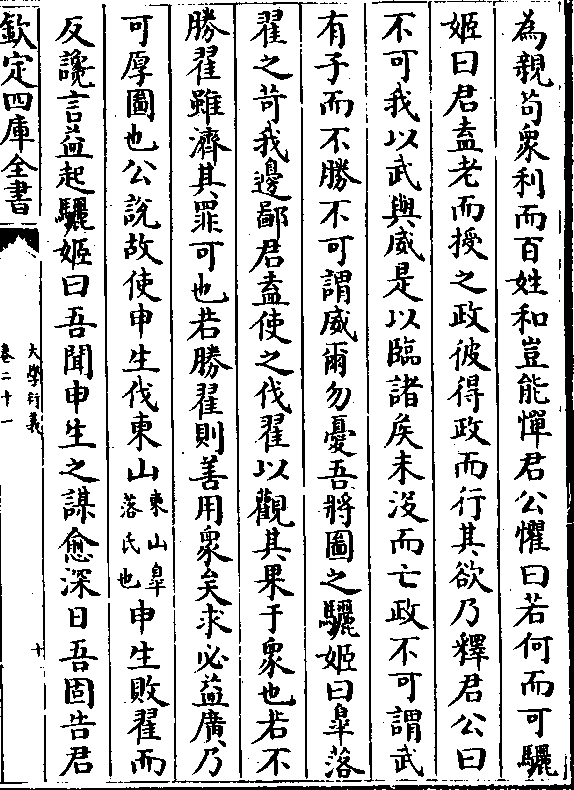 為親苟衆利而百姓和豈能憚君公懼曰若何而可驪
姬曰君盍老而授之政彼得政而行其欲乃釋君公曰
不可我以武與威是以臨諸矦未没而亡政不可謂武
有子而不勝不可謂威爾勿憂吾將圖之驪姬曰臯落
翟之苛我邊鄙君盍使之伐翟以觀其果于衆也若不
勝翟雖濟其罪可也若勝翟則善用衆矣求必益廣乃
可厚圖也公說故使申生伐東山東山臯落氏也申生敗翟而
反讒言益起驪姬曰吾聞申生之謀愈深日吾固告君
欽定四庫全書
大學衍義
卷二十一
十